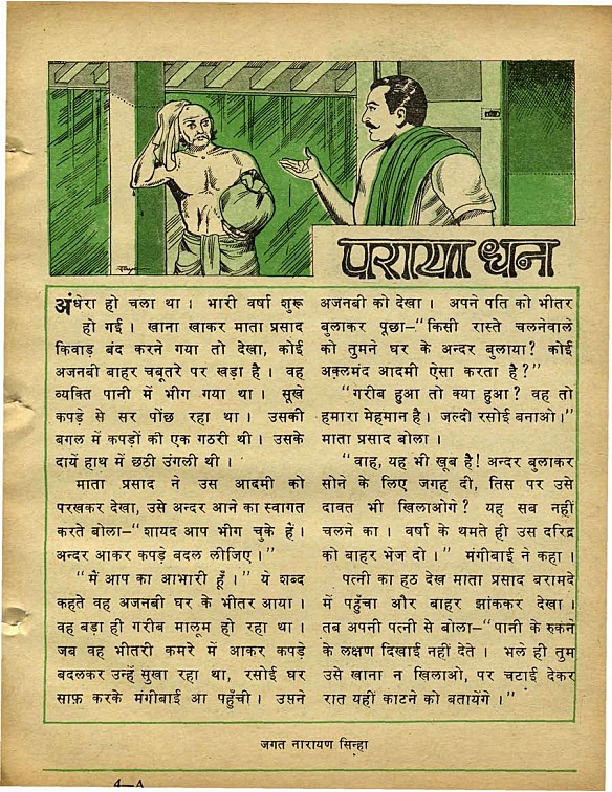 पराया धन
अंधेरा हो चला था । भारी वर्षा शुरू
हो गई । खाना खाकर माता प्रसाद
किवाड़ बंद करने गया तो देखा, कोई
अजनबी बाहर चबूतरे पर खड़ा है । वह
व्यक्ति पानी में भीग गया था । सूखे
कपड़े से सर पोंछ रहा था । उसकी
बगल में कपड़ों की एक गठरी थी । उसके
दायें हाथ में छठी उंगली थी ।
माता प्रसाद ने उस आदमी को
परखकर देखा, उसे अन्दर आने का स्वागत
करते बोला–“शायद आप भीग चुके हैं ।
अन्दर आकर कपड़े बदल लीजिए ।”
“मैं आप का आभारी हूँ ।” ये शब्द
कहते वह अजनबी घर के भीतर आया ।
वह बड़ा ही गरीब मालूम हो रहा था ।
जब वह भीतरी कमरे में आकर कपड़े
बदलकर उन्हें सुखा रहा था, रसोई घर
साफ़ करके मंगीबाई आ पहुँची । उसने
अजनबी को देखा । अपने पति को भीतर
बुलाकर पूछा–“किसी रास्ते चलनेवाले
को तुमने घर के अन्दर बुलाया? कोई
अक़्लमंद आदमी ऐसा करता है ?”
“गरीब हुआ तो क्या हुआ? वह तो
हमारा मेहमान है । जल्दी रसोई बनाओ ।”
माता प्रसाद बोला ।
“वाह, यह भी खूब है! अन्दर बुलाकर
सोने के लिए जगह दी, तिस पर उसे
दावत भी खिलाओगे? यह सब नहीं
चलने का । वर्षा के थमते ही उस दरिद्र
को बाहर भेज दो ।” मंगीबाई ने कहा ।
पत्नी का हठ देख माता प्रसाद बरामदे
में पहुँचा और बाहर झांककर देखा ।
तब अपनी पत्नी से बोला–“पानी के रुकने
के लक्षण दिखाई नहीं देते । भले ही तुम
उसे खाना न खिलाओ, पर चटाई देकर
रात यहीं काटने को बतायेंगे ।”
जगत नारायण सिन्हा